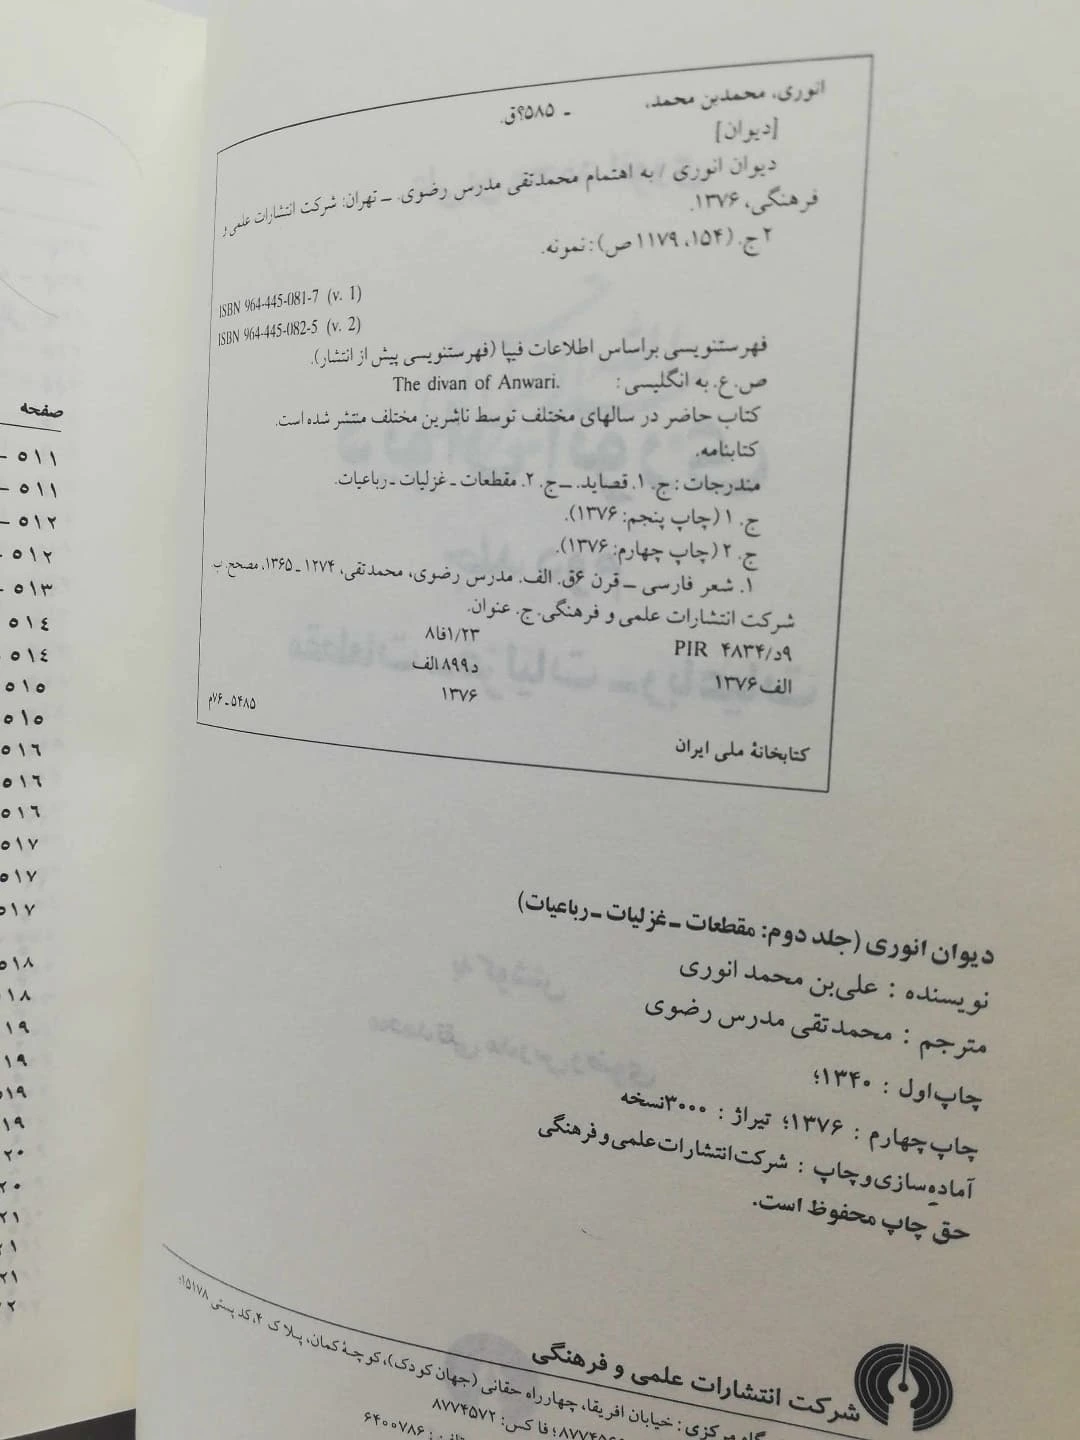 انوری، محمدبن محمد، ـ ۵۸۵؟ق.
[دیوان]
دیوان انوری / به اهتمام محمدتقی مدرس رضوی. ــ تهران: شرکت انتشارات علمی و
فرهنگی، ۱۳۷۶.
۲ ج. (۱۵۴، ۱۱۷۹ ص): نمونه.
ISBN 964-445-081-7 (v. 1)
ISBN 964-445-082-5 (v. 2)
فهرستنویسی براساس اطلاعات فیپا (فهرستنویسی پیش از انتشار).
ص.ع. به انگلیسی: The divan of Anwari.
کتاب حاضر در سالهای مختلف توسط ناشرین مختلف منتشر شده است.
کتابنامه.
مندرجات: ج. ۱. قصاید. ــ ج. ۲. مقطعات ـ غزلیات ـ رباعیات.
ج. ۱ (چاپ پنجم: ۱۳۷۶).
ج. ۲ (چاپ چهارم: ۱۳۷۶).
۱. شعر فارسی ــ قرن ۶ق. الف. مدرس رضوی، محمدتقی، ۱۲۷۴ ـ ۱۳۶۵، مصحح. ب.
شرکت انتشارات علمی و فرهنگی. ج. عنوان.
۹د/۴۸۳۴ PIR ۸فا۱/۲۳
الف۱۳۷۶ د۸۹۹الف
۱۳۷۶
۵۴۸۵ ـ ۷۶م
کتابخانهٔ ملی ایران
دیوان انوری (جلد دوم: مقطعات ـ غزلیات ـ رباعیات)
نویسنده : علی‌بن محمد انوری
مترجم : محمدتقی مدرس رضوی
چاپ اول : ۱۳۴۰؛
چاپ چهارم : ۱۳۷۶؛ تیراژ : ۳۰۰۰نسخه
آماده‌سازی و چاپ : شرکت انتشارات علمی و فرهنگی
حق چاپ محفوظ است.
شرکت انتشارات علمی و فرهنگی
مرکزی : خیابان افریقا، چهارراه حقانی (جهان کودک)، کوچهٔ کمان، پلاک ۴، کد پستی ۱۵۱۷۸؛
فاکس: ۸۷۷۴۵۷۲
۶۴۰۰۷۸۶
صفحه
۵۱۱
۵۱۱
۵۱۲
۵۱۲
۵۱۳
۵۱٤
۵۱٤
۵۱۵
۵۱۵
۵۱٦
۵۱٦
۵۱٦
۵۱۷
۵۱۷
۵۱۷
۵۱۸